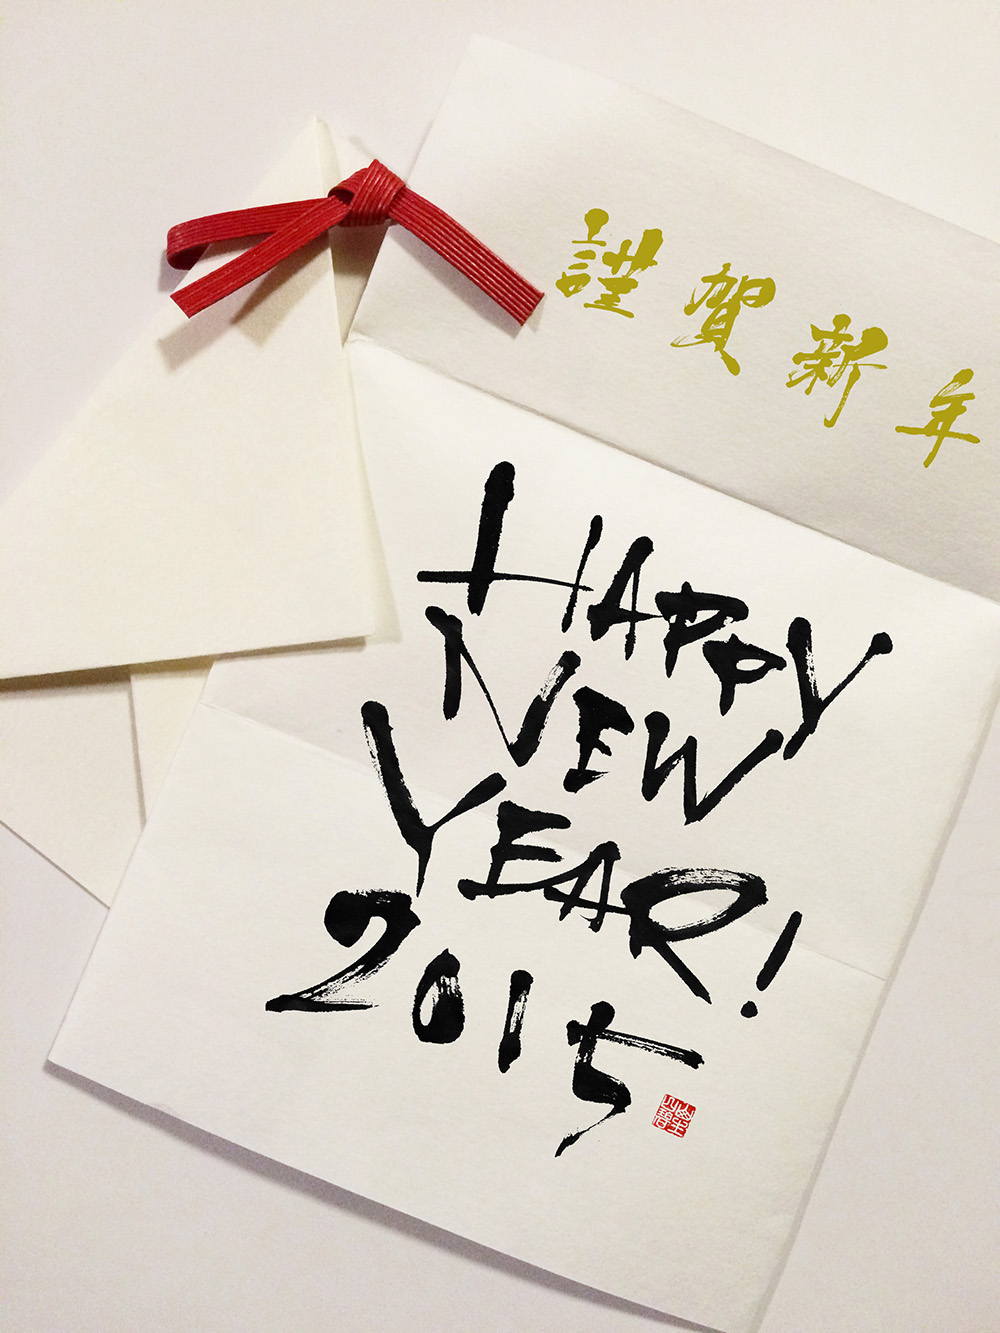 謹賀新年
HAPPY
NEW
YEAR!
2015